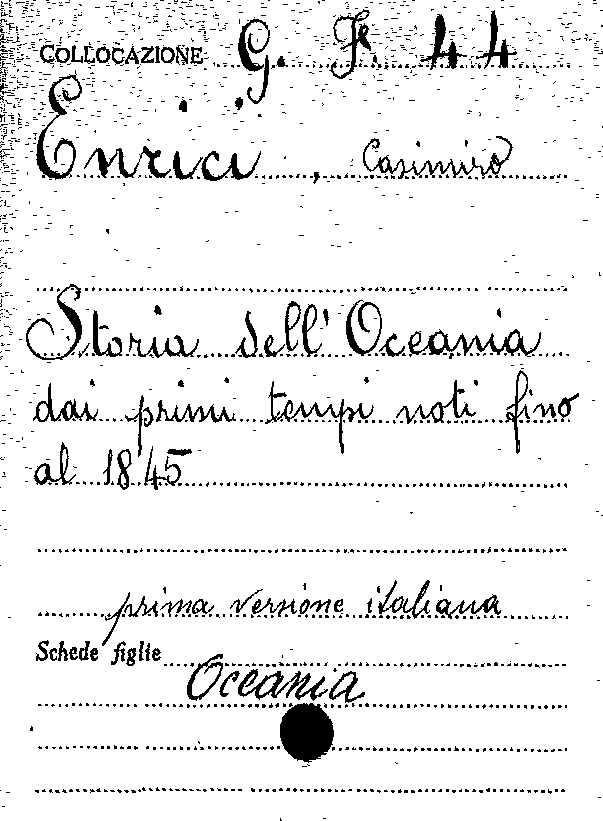 COLLOCAZIONE G. F. 44
Enrici, Casimiro
Storia dell'Oceania
dai primi tempi noti fino
al 1845
prima versione italiana
Schede figlie
Oceania